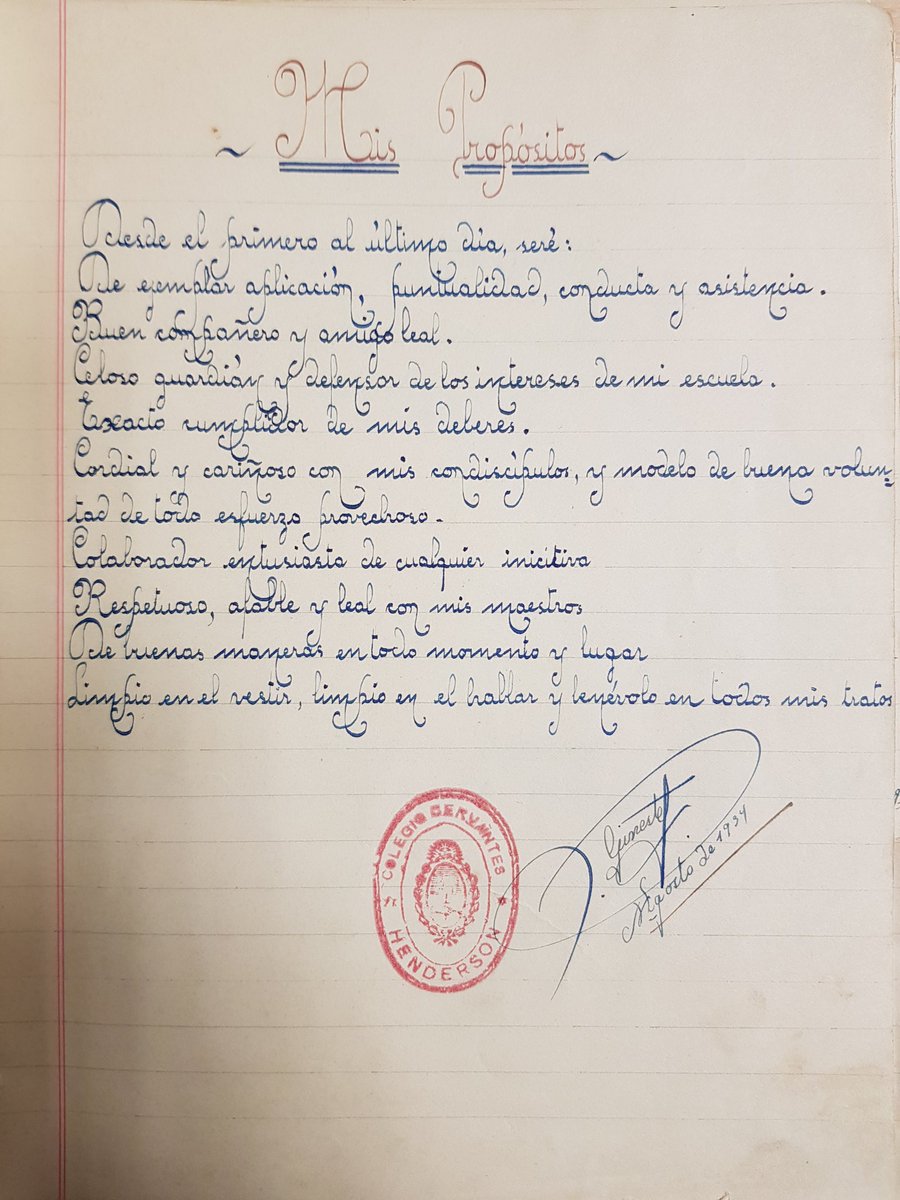 ~ Mis Propósitos ~
Desde el primero al último día, seré:
De ejemplar aplicación, puntualidad, conducta y asistencia.
Buen compañero y amigo leal.
Celoso guardián y defensor de los intereses de mi escuela.
Exacto cumplidor de mis deberes.
Cordial y cariñoso con mis condiscípulos, y modelo de buena volun=
tad de todo esfuerzo provechoso.
Colaborador entusiasta de cualquier inicitiva
Respetuoso, afable y leal con mis maestros
De buenas maneras en todo momento y lugar
Limpio en el vestir, limpio en el hablar y benévolo en todos mis tratos
COLEGIO CERVANTES
HENDERSON
Agosto de 1934